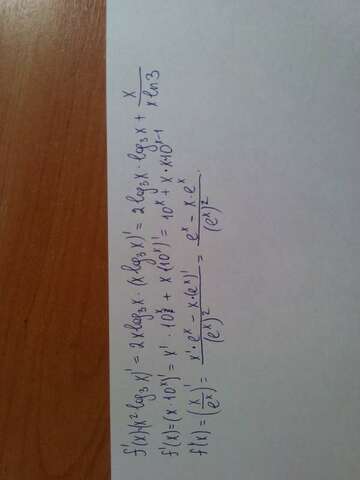 f'(x)=(x² log₃x)' = 2x log₃x · (x log₃x)' = 2log₃x · log₃x + x/(x ln3)
f'(x)=(x·10ˣ)' = x' · 10ˣ + x·(10ˣ)' = 10ˣ + x · x·10ˣ⁻¹
f'(x) = (x/eˣ)' = (x'·eˣ - x·(eˣ)')/(eˣ)² = (eˣ - x·eˣ)/(eˣ)².